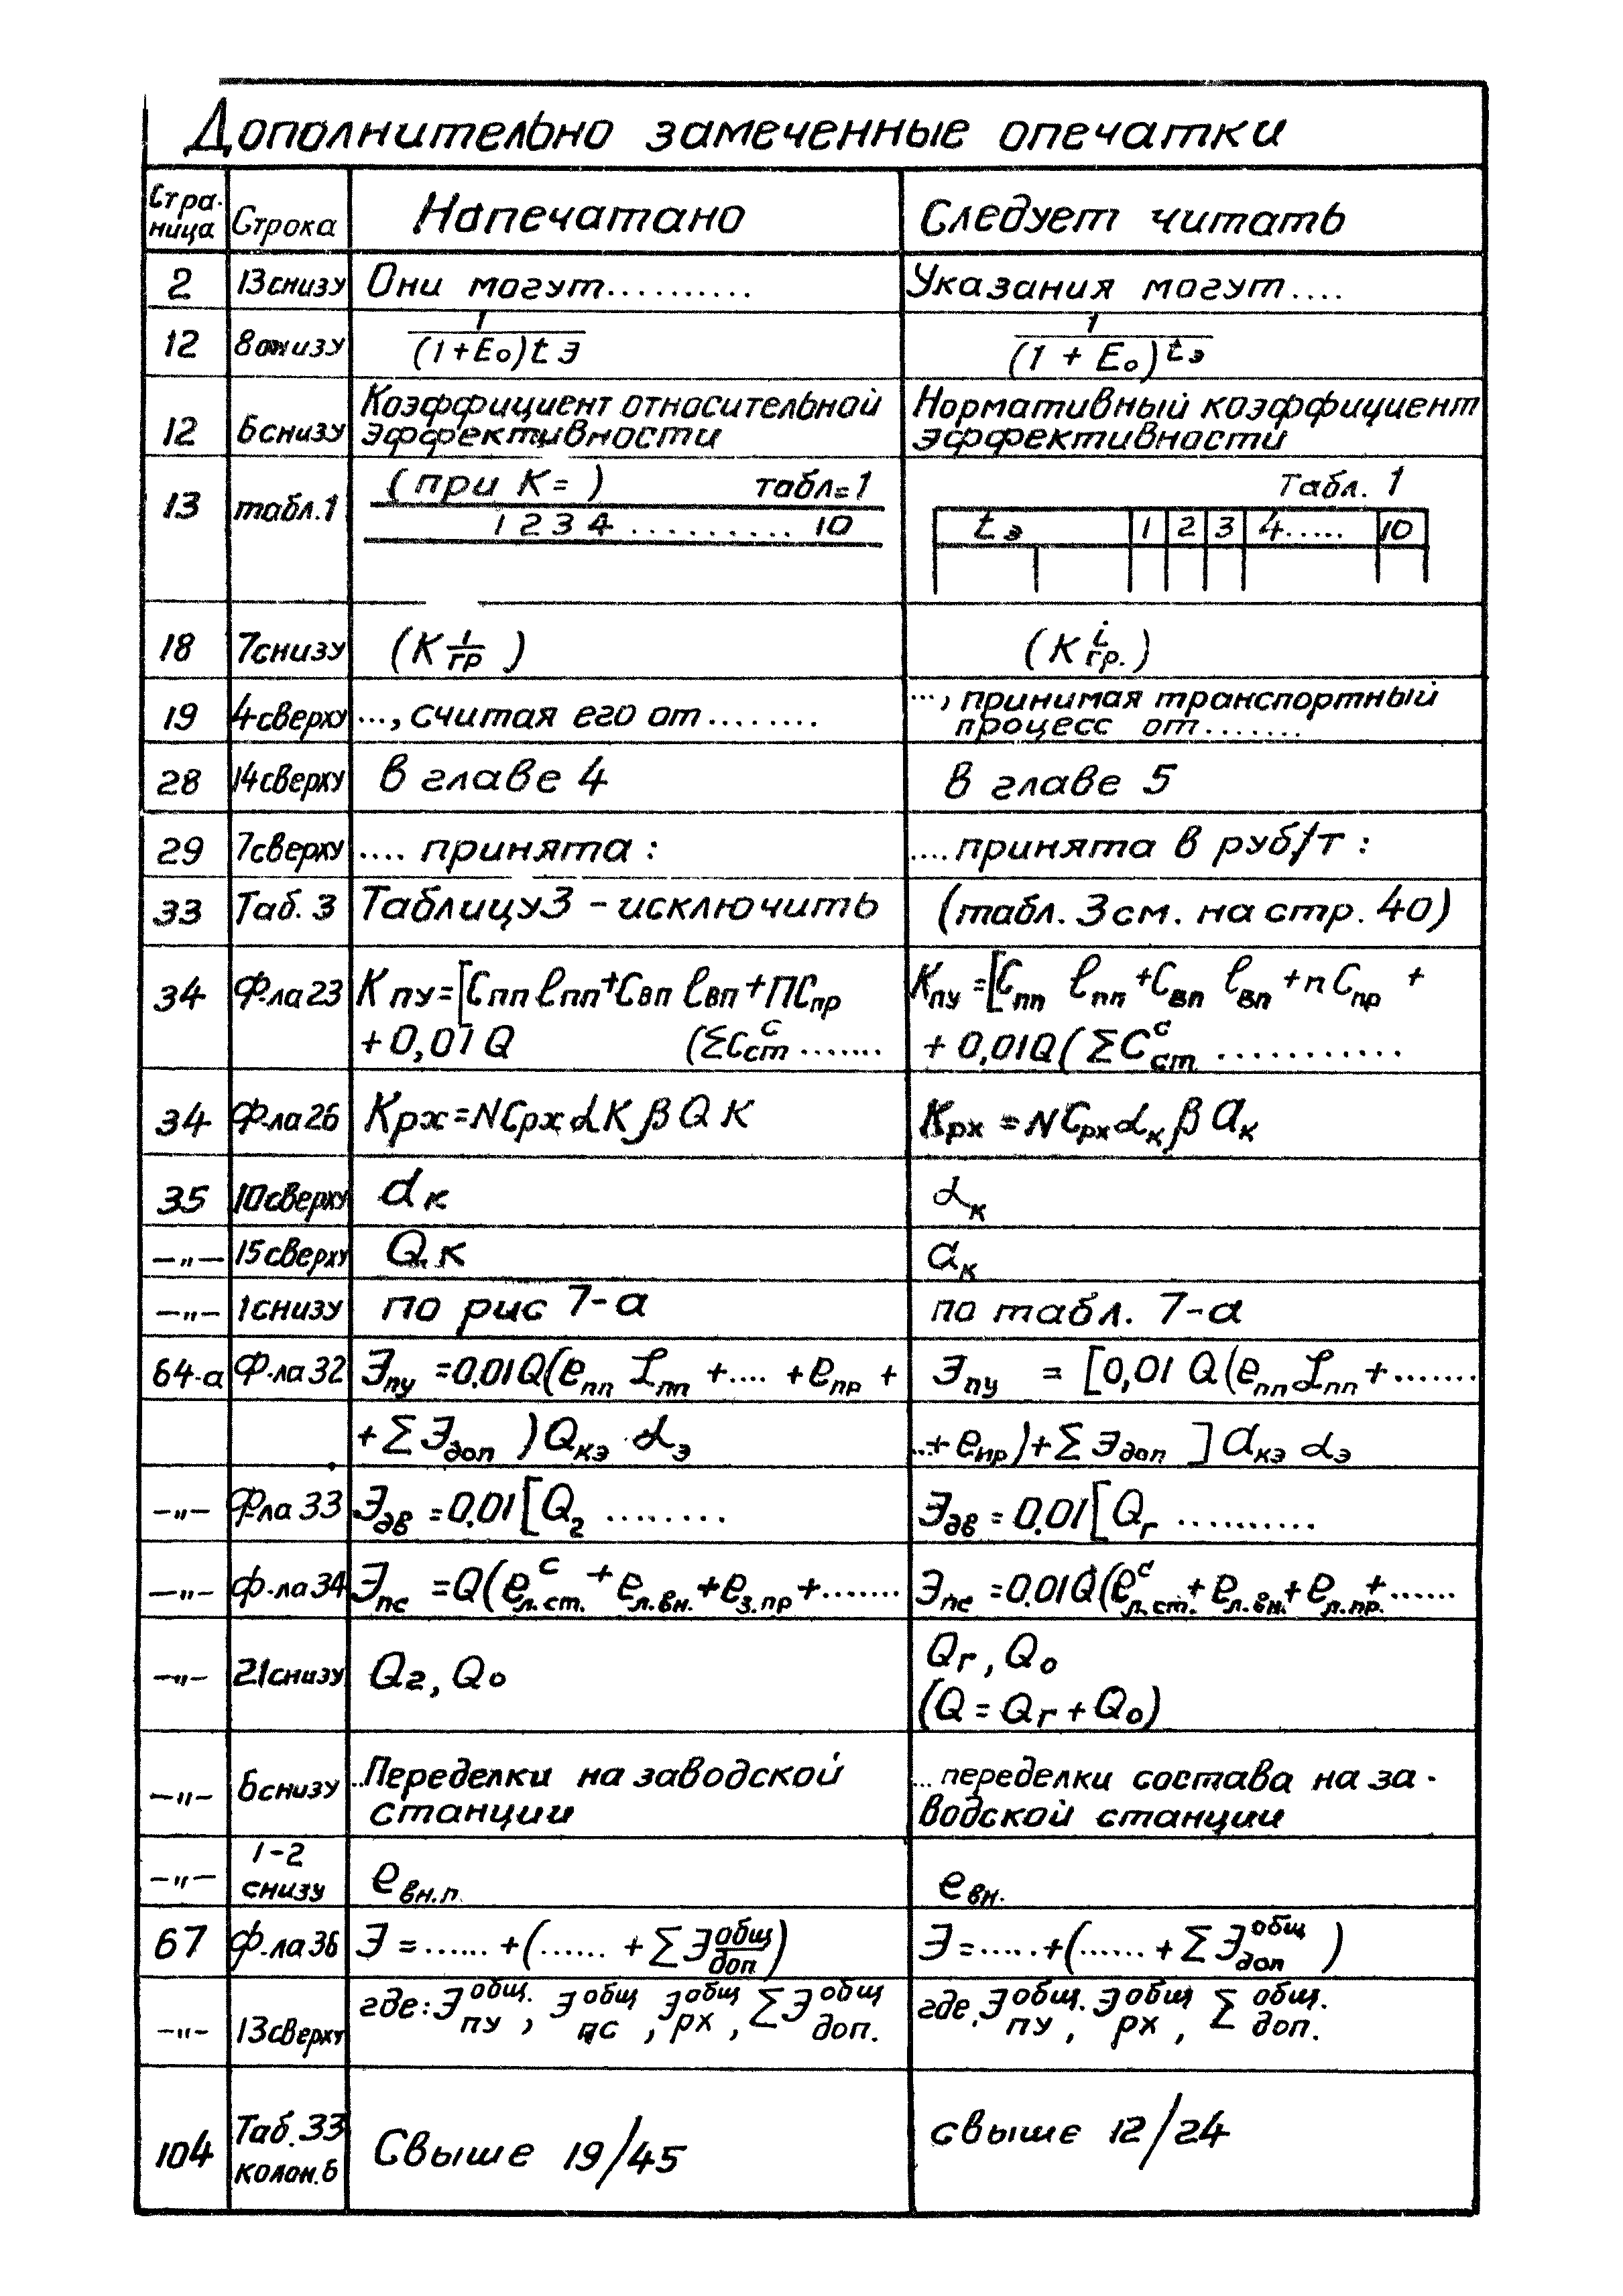 Дополнительно замеченные опечатки
Стра-
ница Строка Напечатано Следует читать
2 13 снизу Они могут.......... Указания могут....
12 8 снизу 1/(1+E₀)tэ 1/(1+E₀)^tэ
12 6 снизу Коэффициент относительной Нормативный коэффициент
эффективности эффективности
13 табл.1 (при К= ) табл=1 Табл. 1
1 2 3 4 .......... 10 tэ 1 2 3 4..... 10
18 7 снизу (К 1/гр ) (К i гр.)
19 4 сверху ..., считая его от........ ..., принимая транспортный
процесс от.......
28 14 сверху в главе 4 в главе 5
29 7 сверху .... принята: ....принята в руб/т:
33 Таб. 3 Таблицу 3 - исключить (табл. 3 см. на стр. 40)
34 Ф-ла 23 Kпу=[Cпп ℓпп+Cвп ℓвп+ПCпр Kпу=[Cпп ℓпп+Cвп ℓвп+nCпр +
+0,01Q (ΣCст^с ....... +0,01Q(ΣCст^с ...........
34 Ф-ла 26 Kрж=NCрж αKβQK Kрх=NCрхαкβaк
35 10 сверху dк αк
—„— 15 сверху Q.к aк
—„— 1 снизу по рис 7-а по табл. 7-а
64-а Ф-ла 32 Эпу =0.01Q(eпп ℒпп +.... +eпр + Эпу = [0,01 Q(eпп ℒпп+.......
+ΣЭдоп )Qкэ αэ ...+eпр)+ΣЭдоп ]aкэ αэ
—„— Ф-ла 33 Эдв =0.01[Q₂ ........ Эдв =0.01[Qг ..........
—„— Ф-ла 34 Эпс =Q(eл.ст.^с +eл.вн.+eз.пр+....... Эпс =0.01Q(eл.ст.^с+eл.вн.+eл.пр.+......
—„— 21 снизу Q₂, Q₀ Qг, Q₀
(Q=Qг+Q₀)
—„— 6 снизу ..Переделки на заводской ...переделки состава на за-
станции водской станции
—„— 1-2
снизу eвн.п. eвн.
67 Ф-ла 36 Э =......+(...... +ΣЭ общ/доп) Э=......+(...... +ΣЭдоп^общ )
—„— 13 сверху где: Эпу^общ., Эпс^общ, Эрх^общ, ΣЭдоп.^общ где, Эпу^общ., Эрх^общ, Σдоп.^общ.
104 Таб. 33
колон. 6 Свыше 19/45 свыше 12/24